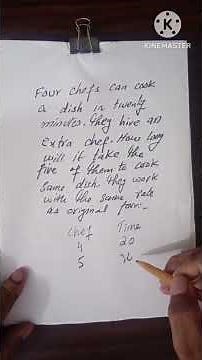 MADE WITH
KINEMASTER
Four chefs can cook
a dish in twenty
minutes. They hire an
extra chef. How long
will it take the
five of them to cook
same dish. They work
with the same rate
as original four:-
Chef Time
4 20
5 x